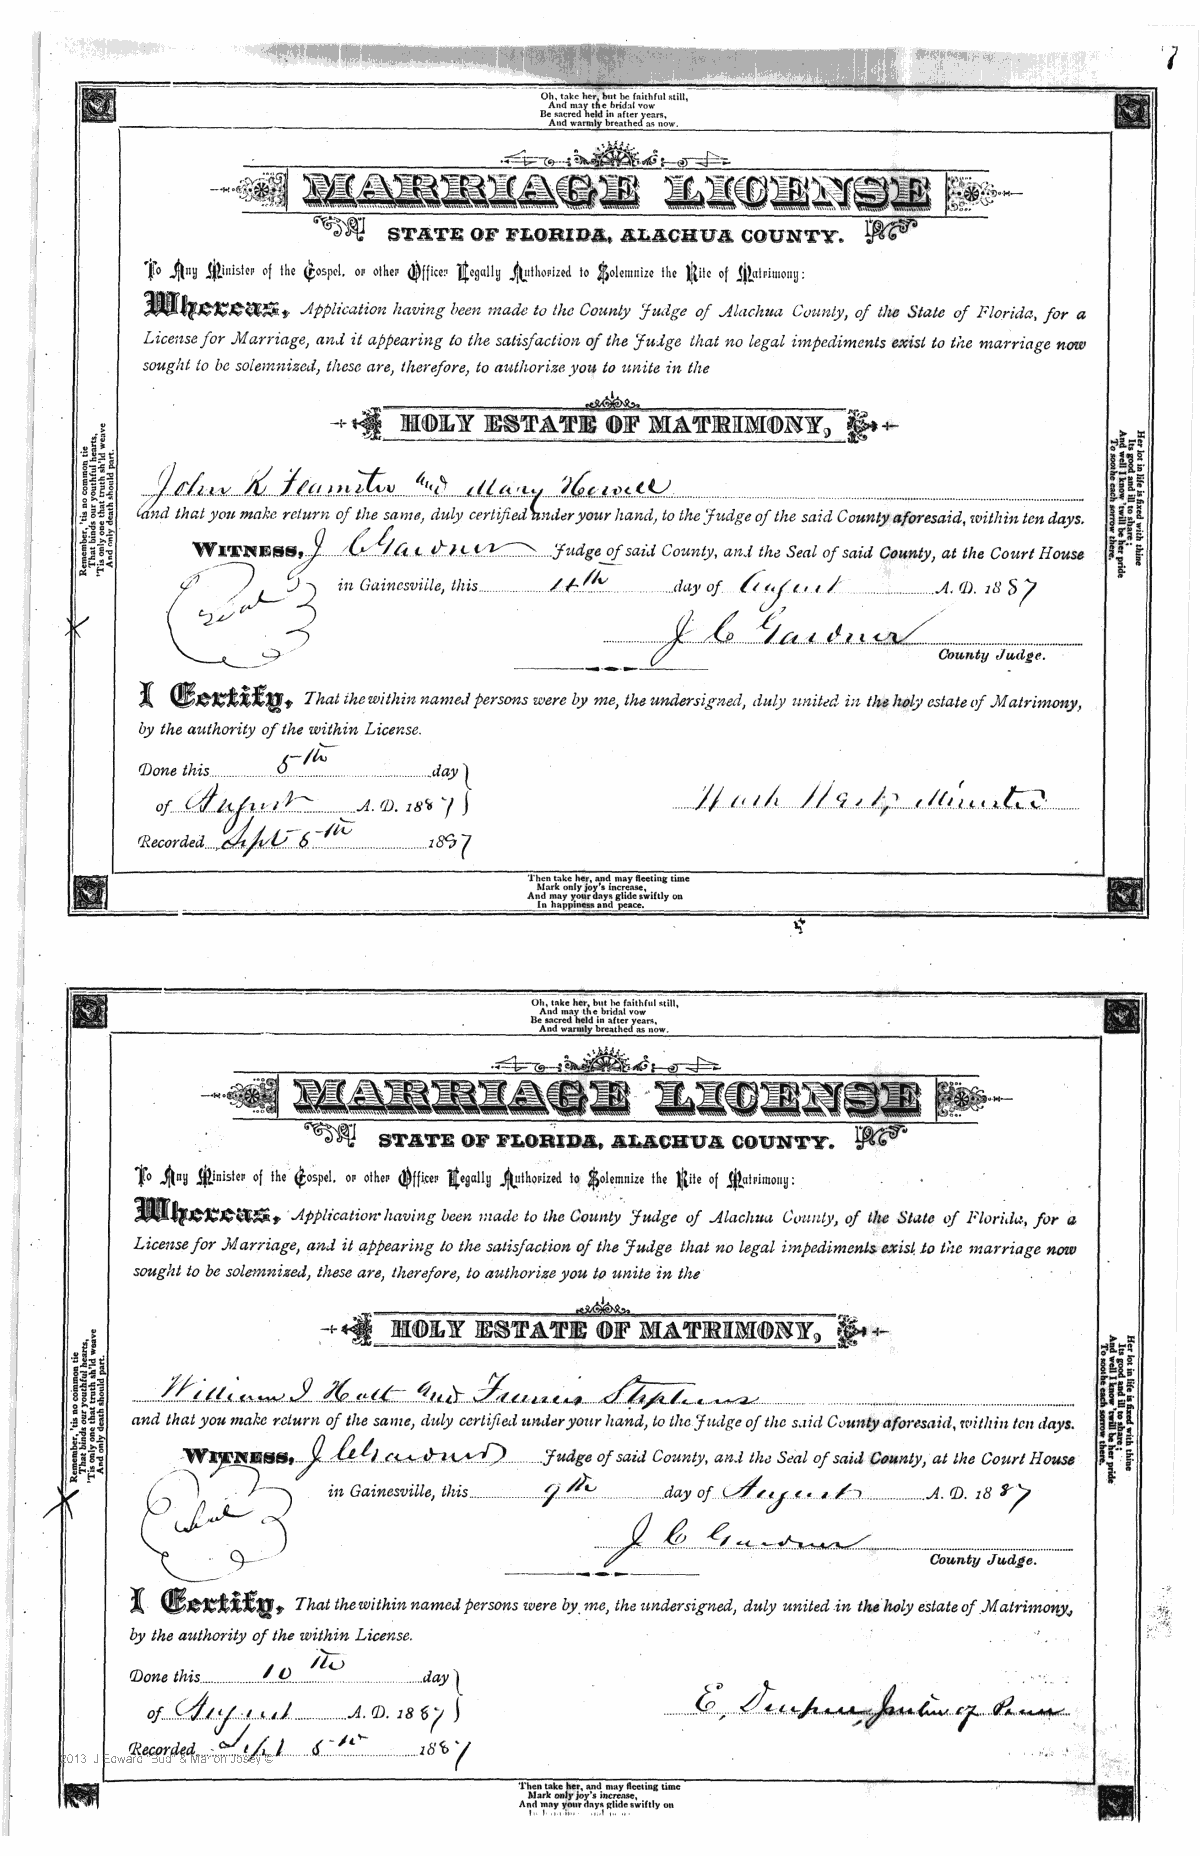 7
Oh, take her, but be faithful still,
And may the bridal vow
Be sacred held in after years,
And warmly breathed as now.
MARRIAGE LICENSE
STATE OF FLORIDA, ALACHUA COUNTY.
To Any Minister of the Gospel, or other Officer Legally Authorized to Solemnize the Rite of Matrimony:
Whereas, Application having been made to the County Judge of Alachua County, of the State of Florida, for a
License for Marriage, and it appearing to the satisfaction of the Judge that no legal impediments exist to the marriage now
sought to be solemnized, these are, therefore, to authorize you to unite in the
HOLY ESTATE OF MATRIMONY,
Remember, 'tis no common tie
That binds our youthful hearts,
'Tis only one that truth sh'ld weave
And only death should part.
Her lot in life is fixed with thine
Its good and ill to share;
And well I know 'twill be her pride
To soothe each sorrow there.
John R Feamster and Mary Howell
and that you make return of the same, duly certified under your hand, to the Judge of the said County aforesaid, within ten days.
WITNESS, J C Gardner Judge of said County, and the Seal of said County, at the Court House
Seal in Gainesville, this 4th day of August A. D. 1887
J C Gardner
County Judge.
I Certify, That the within named persons were by me, the undersigned, duly united in the holy estate of Matrimony,
by the authority of the within License.
Done this 5th day
of August A. D. 1887
Minister
Recorded Sept 5th 1887
Then take her, and may fleeting time
Mark only joy's increase,
And may your days glide swiftly on
In happiness and peace.
Oh, take her, but be faithful still,
And may the bridal vow
Be sacred held in after years,
And warmly breathed as now.
MARRIAGE LICENSE
STATE OF FLORIDA, ALACHUA COUNTY.
To Any Minister of the Gospel, or other Officer Legally Authorized to Solemnize the Rite of Matrimony:
Whereas, Application having been made to the County Judge of Alachua County, of the State of Florida, for a
License for Marriage, and it appearing to the satisfaction of the Judge that no legal impediments exist to the marriage now
sought to be solemnized, these are, therefore, to authorize you to unite in the
HOLY ESTATE OF MATRIMONY,
Remember, 'tis no common tie
That binds our youthful hearts,
'Tis only one that truth sh'ld weave
And only death should part.
Her lot in life is fixed with thine
Its good and ill to share;
And well I know 'twill be her pride
To soothe each sorrow there.
William J Hatt and Francis Stephens
and that you make return of the same, duly certified under your hand, to the Judge of the said County aforesaid, within ten days.
WITNESS, J C Gardner Judge of said County, and the Seal of said County, at the Court House
Seal in Gainesville, this 9th day of August A. D. 1887
J C Gardner
County Judge.
I Certify, That the within named persons were by me, the undersigned, duly united in the holy estate of Matrimony,
by the authority of the within License.
Done this 10th day
of August A. D. 1887
E. Justice of Peace
Recorded Sept 5th 1887
2013 J Edward "Bud" & Marion Josey ©
Then take her, and may fleeting time
Mark only joy's increase,
And may your days glide swiftly on